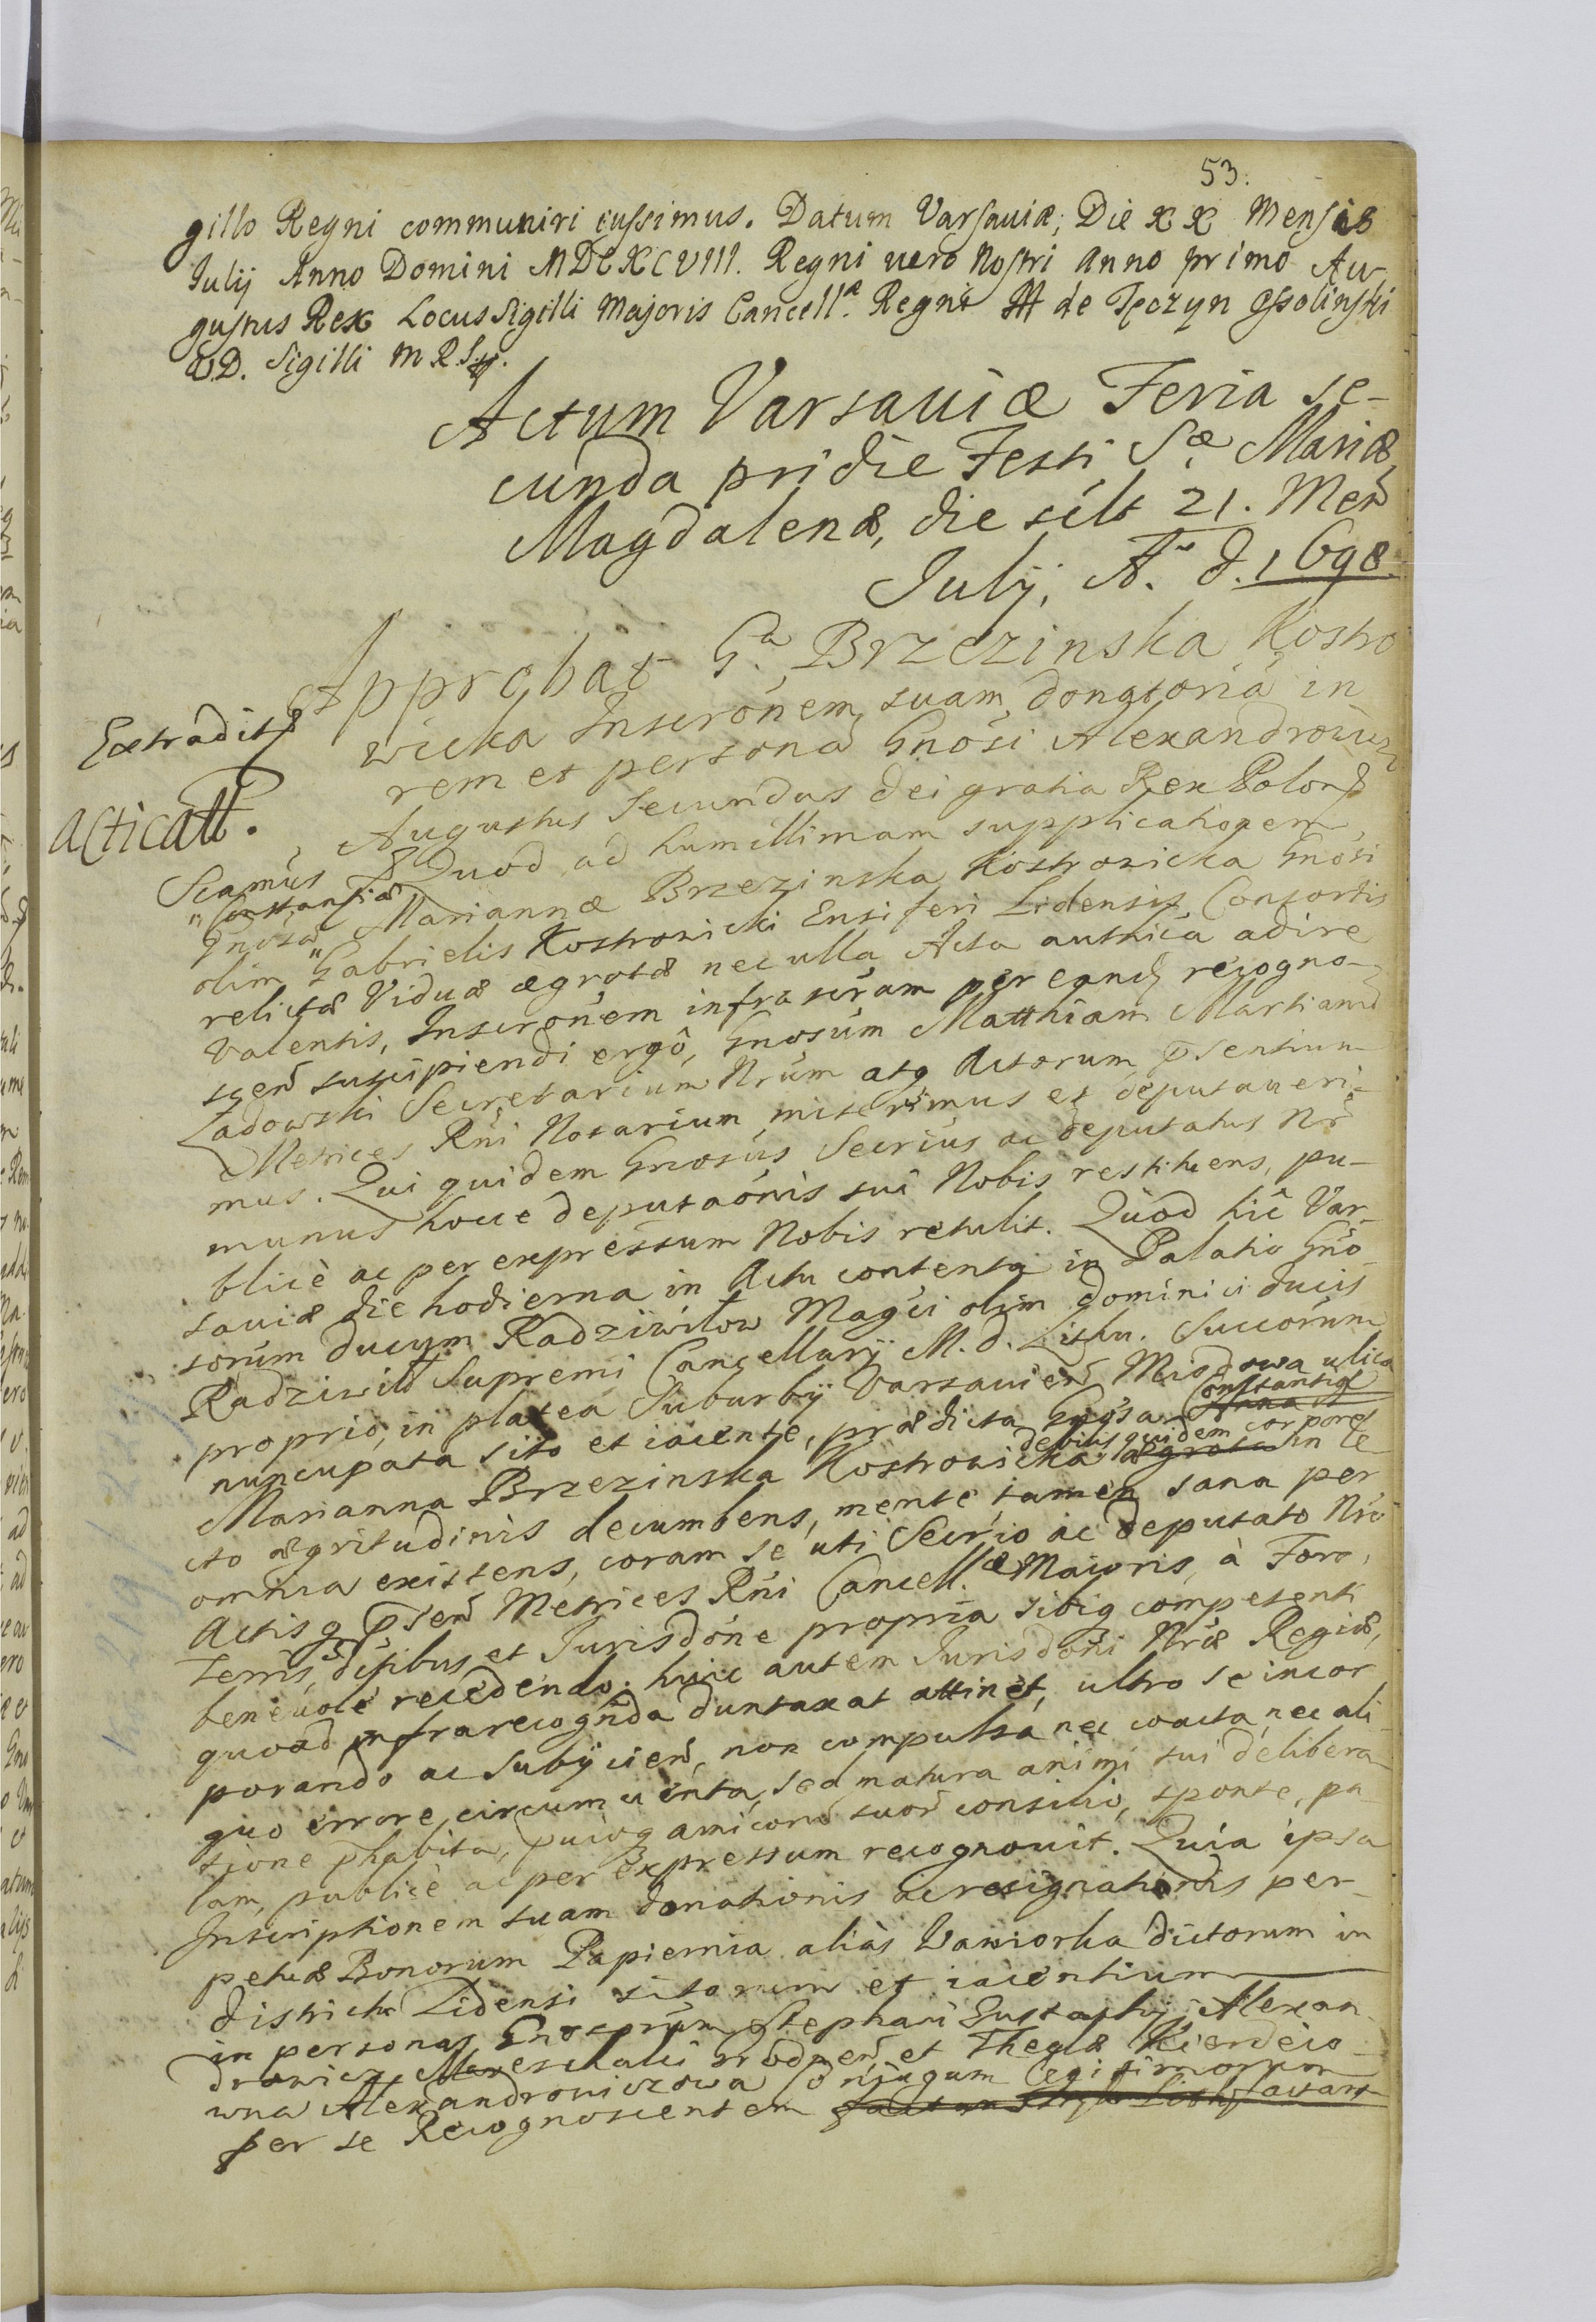 53.
gillo Regni communiri iussimus. Datum Varsaviæ, Die XX Mensis
Julij Anno Domini MDCXCVIII. Regni vero Nostri Anno primo Au-
gustus Rex Locus Sigilli Majoris Cancellæ Regni de Tęczyn Ossolinski
S.D. Sigilli M R S.
Actum Varsaviæ Feria se-
cunda pridie Festi Sæ Mariæ
Magdalenæ, die scilt 21. Men
Julij, Ao d. 1698
Approbat Ga Brzezinska Kostro
wicka Inscrónem suam donatoria in
rem et persona Gnosi Alexandrowicz
Extradit
Acticatt.
Augustus Secundus Dei gratia Rex Polon
Scamus Quod ad humillimam supplicationem
"Constantiæ
Gnosa Mariannæ Brzezinska Kostrowicka Gnosi
olim "Gabrielis Kostrowicki Ensiferi Lidensis Consortis
relictæ Viduæ ægrotæ nec ulla Acta authica adire
valentis, Inscronem infrascram per eand recogno-
scen suscipiendi ergò, Gnosum Matthiam Martianu
Ladowski Secretarium Nrum atq Actorum psentium
Metrices Rni Notarium miserimus et deputaueri-
mus. Qui quidem Gnosus Secrius ac deputatus Nr
munus hocce deputaonis sui Nobis restituens, pu-
blicè ac per expressum Nobis retulit. Quod hic Var-
saviæ die hodierna in Actu contenta in Palatio Gno
sorum ducum Radziwiłow Magci olim Dominici ducis
Radziwiłł Supremi Cancellarij M. d. Lithu. Succorum
proprio, in platea Suburbij Varsavien Miodowa ulica
nuncupata sito et iacente, prædicta Gnosa Anna Constantia
Marianna Brzezinska Kostrowicka ægrota debilis quidem corpore et in le
cto ægritudinis decumbens, mente tamen sana per
omnia existens, coram se uti Secrio ac deputato Nro
Actisq psen Metrices Rni Cancellæ Maioris, à Foro,
Terris, distibus et Jurisdone propria sibiq competenti
benevole recedendo, huic autem Jurisdoni Nræ Regiæ,
quoad infrarecognda duntaxat attinet, ultro se incor
porando ac subijcien, non compulsa nec coacta, nec ali
quo errore circumuenta, sed matura animi sui delibera
tione phabita, amicoru suor consilio, sponte, pa
lam, publicè ac per expressum recognouit. Quia ipsa
Inscriptionem suam donationis ac resignationis per-
petuæ Bonorum Papiernia aliàs Wawiorka dictorum in
districtu Lidensi sitorum et iacentium
in personas Gnosorum Stephani Eustaphij Alexan
drowicz Mareschalci Grodnen et Theclæ Kierdeio
wna Alexandrowiczowa Conjugum legitimorum
per se Recognoscentem